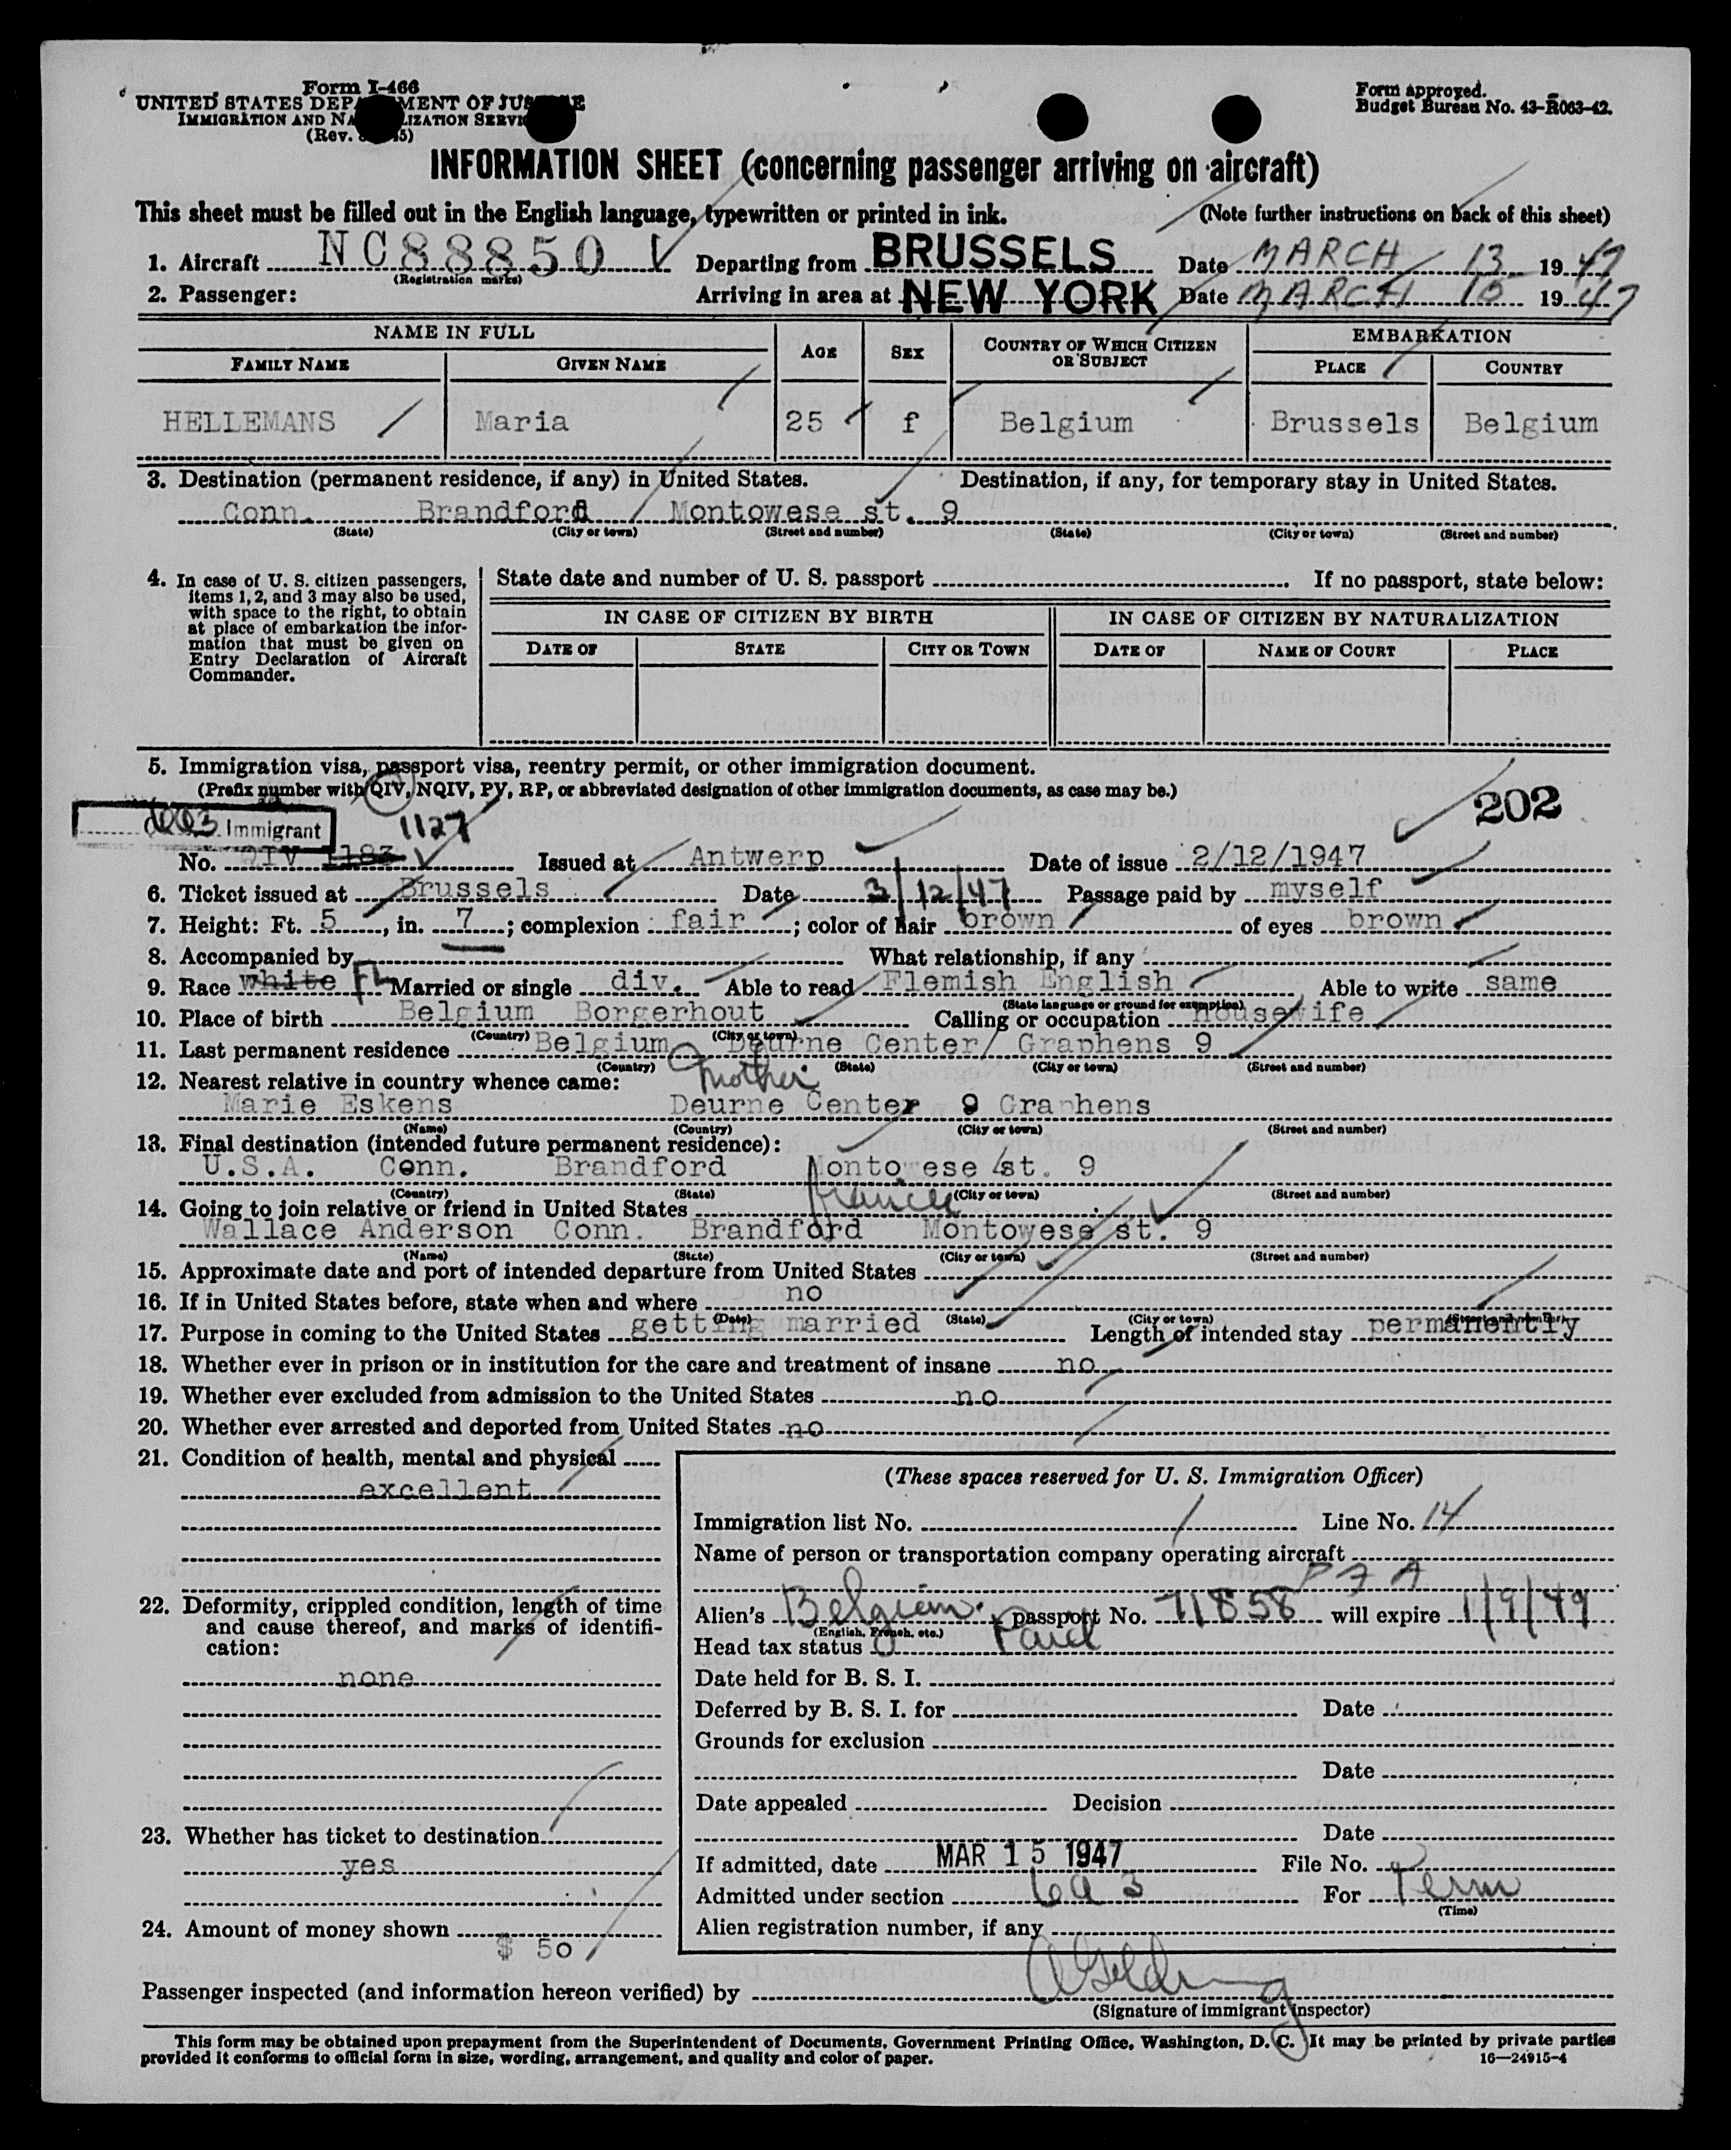 Form I-466
UNITED STATES DEPARTMENT OF JUSTICE
IMMIGRATION AND NATURALIZATION SERVICE
(Rev.
Form approved.
Budget Bureau No. 43-R063-42.
INFORMATION SHEET (concerning passenger arriving on aircraft)
This sheet must be filled out in the English language, typewritten or printed in ink. (Note further instructions on back of this sheet)
1. Aircraft NC88850 Departing from BRUSSELS Date MARCH 13 1947
(Registration marks)
2. Passenger: Arriving in area at NEW YORK Date MARCH 15 1947
NAME IN FULL AGE SEX COUNTRY OF WHICH CITIZEN OR SUBJECT EMBARKATION
FAMILY NAME GIVEN NAME PLACE COUNTRY
HELLEMANS Maria 25 f Belgium Brussels Belgium
3. Destination (permanent residence, if any) in United States. Destination, if any, for temporary stay in United States.
Conn. Brandford Montowese st. 9
(State) (City or town) (Street and number) (State) (City or town) (Street and number)
4. In case of U. S. citizen passengers, items 1, 2, and 3 may also be used, with space to the right, to obtain at place of embarkation the information that must be given on Entry Declaration of Aircraft Commander.
State date and number of U. S. passport If no passport, state below:
IN CASE OF CITIZEN BY BIRTH IN CASE OF CITIZEN BY NATURALIZATION
DATE OF STATE CITY OR TOWN DATE OF NAME OF COURT PLACE
5. Immigration visa, passport visa, reentry permit, or other immigration document.
(Prefix number with QIV, NQIV, PV, RP, or abbreviated designation of other immigration documents, as case may be.)
202
6a3 Immigrant 1127
No. QIV 1183 Issued at Antwerp Date of issue 2/12/1947
6. Ticket issued at Brussels Date 3/12/47 Passage paid by myself
7. Height: Ft. 5, in. 7; complexion fair; color of hair brown of eyes brown
8. Accompanied by What relationship, if any
9. Race white FL Married or single div. Able to read Flemish English Able to write same
(State language or ground for exemption)
10. Place of birth Belgium Borgerhout Calling or occupation housewife
(Country) (City or town)
11. Last permanent residence Belgium Deurne Center/ Graphens 9
(Country) (State) (City or town) (Street and number)
12. Nearest relative in country whence came: mother
Marie Eskens Deurne Center 9 Graphens
(Name) (Country) (City or town) (Street and number)
13. Final destination (intended future permanent residence):
U.S.A. Conn. Brandford Montowese st. 9
(Country) (State) (City or town) (Street and number)
14. Going to join relative or friend in United States
Wallace Anderson Conn. Brandford Montowese st. 9
(Name) (State) (City or town) (Street and number)
15. Approximate date and port of intended departure from United States
16. If in United States before, state when and where no
(Date) (State) (City or town) (Street and number)
17. Purpose in coming to the United States getting married Length of intended stay permanently
18. Whether ever in prison or in institution for the care and treatment of insane no
19. Whether ever excluded from admission to the United States no
20. Whether ever arrested and deported from United States no
21. Condition of health, mental and physical
excellent
22. Deformity, crippled condition, length of time and cause thereof, and marks of identification:
none
23. Whether has ticket to destination
yes
24. Amount of money shown
$ 50
(These spaces reserved for U. S. Immigration Officer)
Immigration list No. 1 Line No. 14
Name of person or transportation company operating aircraft
P A A
Alien's Belgium passport No. 71858 will expire 1/9/49
(English, French, etc.)
Head tax status Paid
Date held for B. S. I.
Deferred by B. S. I. for Date
Grounds for exclusion
Date
Date appealed Decision
Date
If admitted, date MAR 15 1947 File No.
Admitted under section 6a3 For Perm
(Time)
Alien registration number, if any
Passenger inspected (and information hereon verified) by
(Signature of immigrant inspector)
This form may be obtained upon prepayment from the Superintendent of Documents, Government Printing Office, Washington, D. C. It may be printed by private parties
provided it conforms to official form in size, wording, arrangement, and quality and color of paper. 16—24915-4